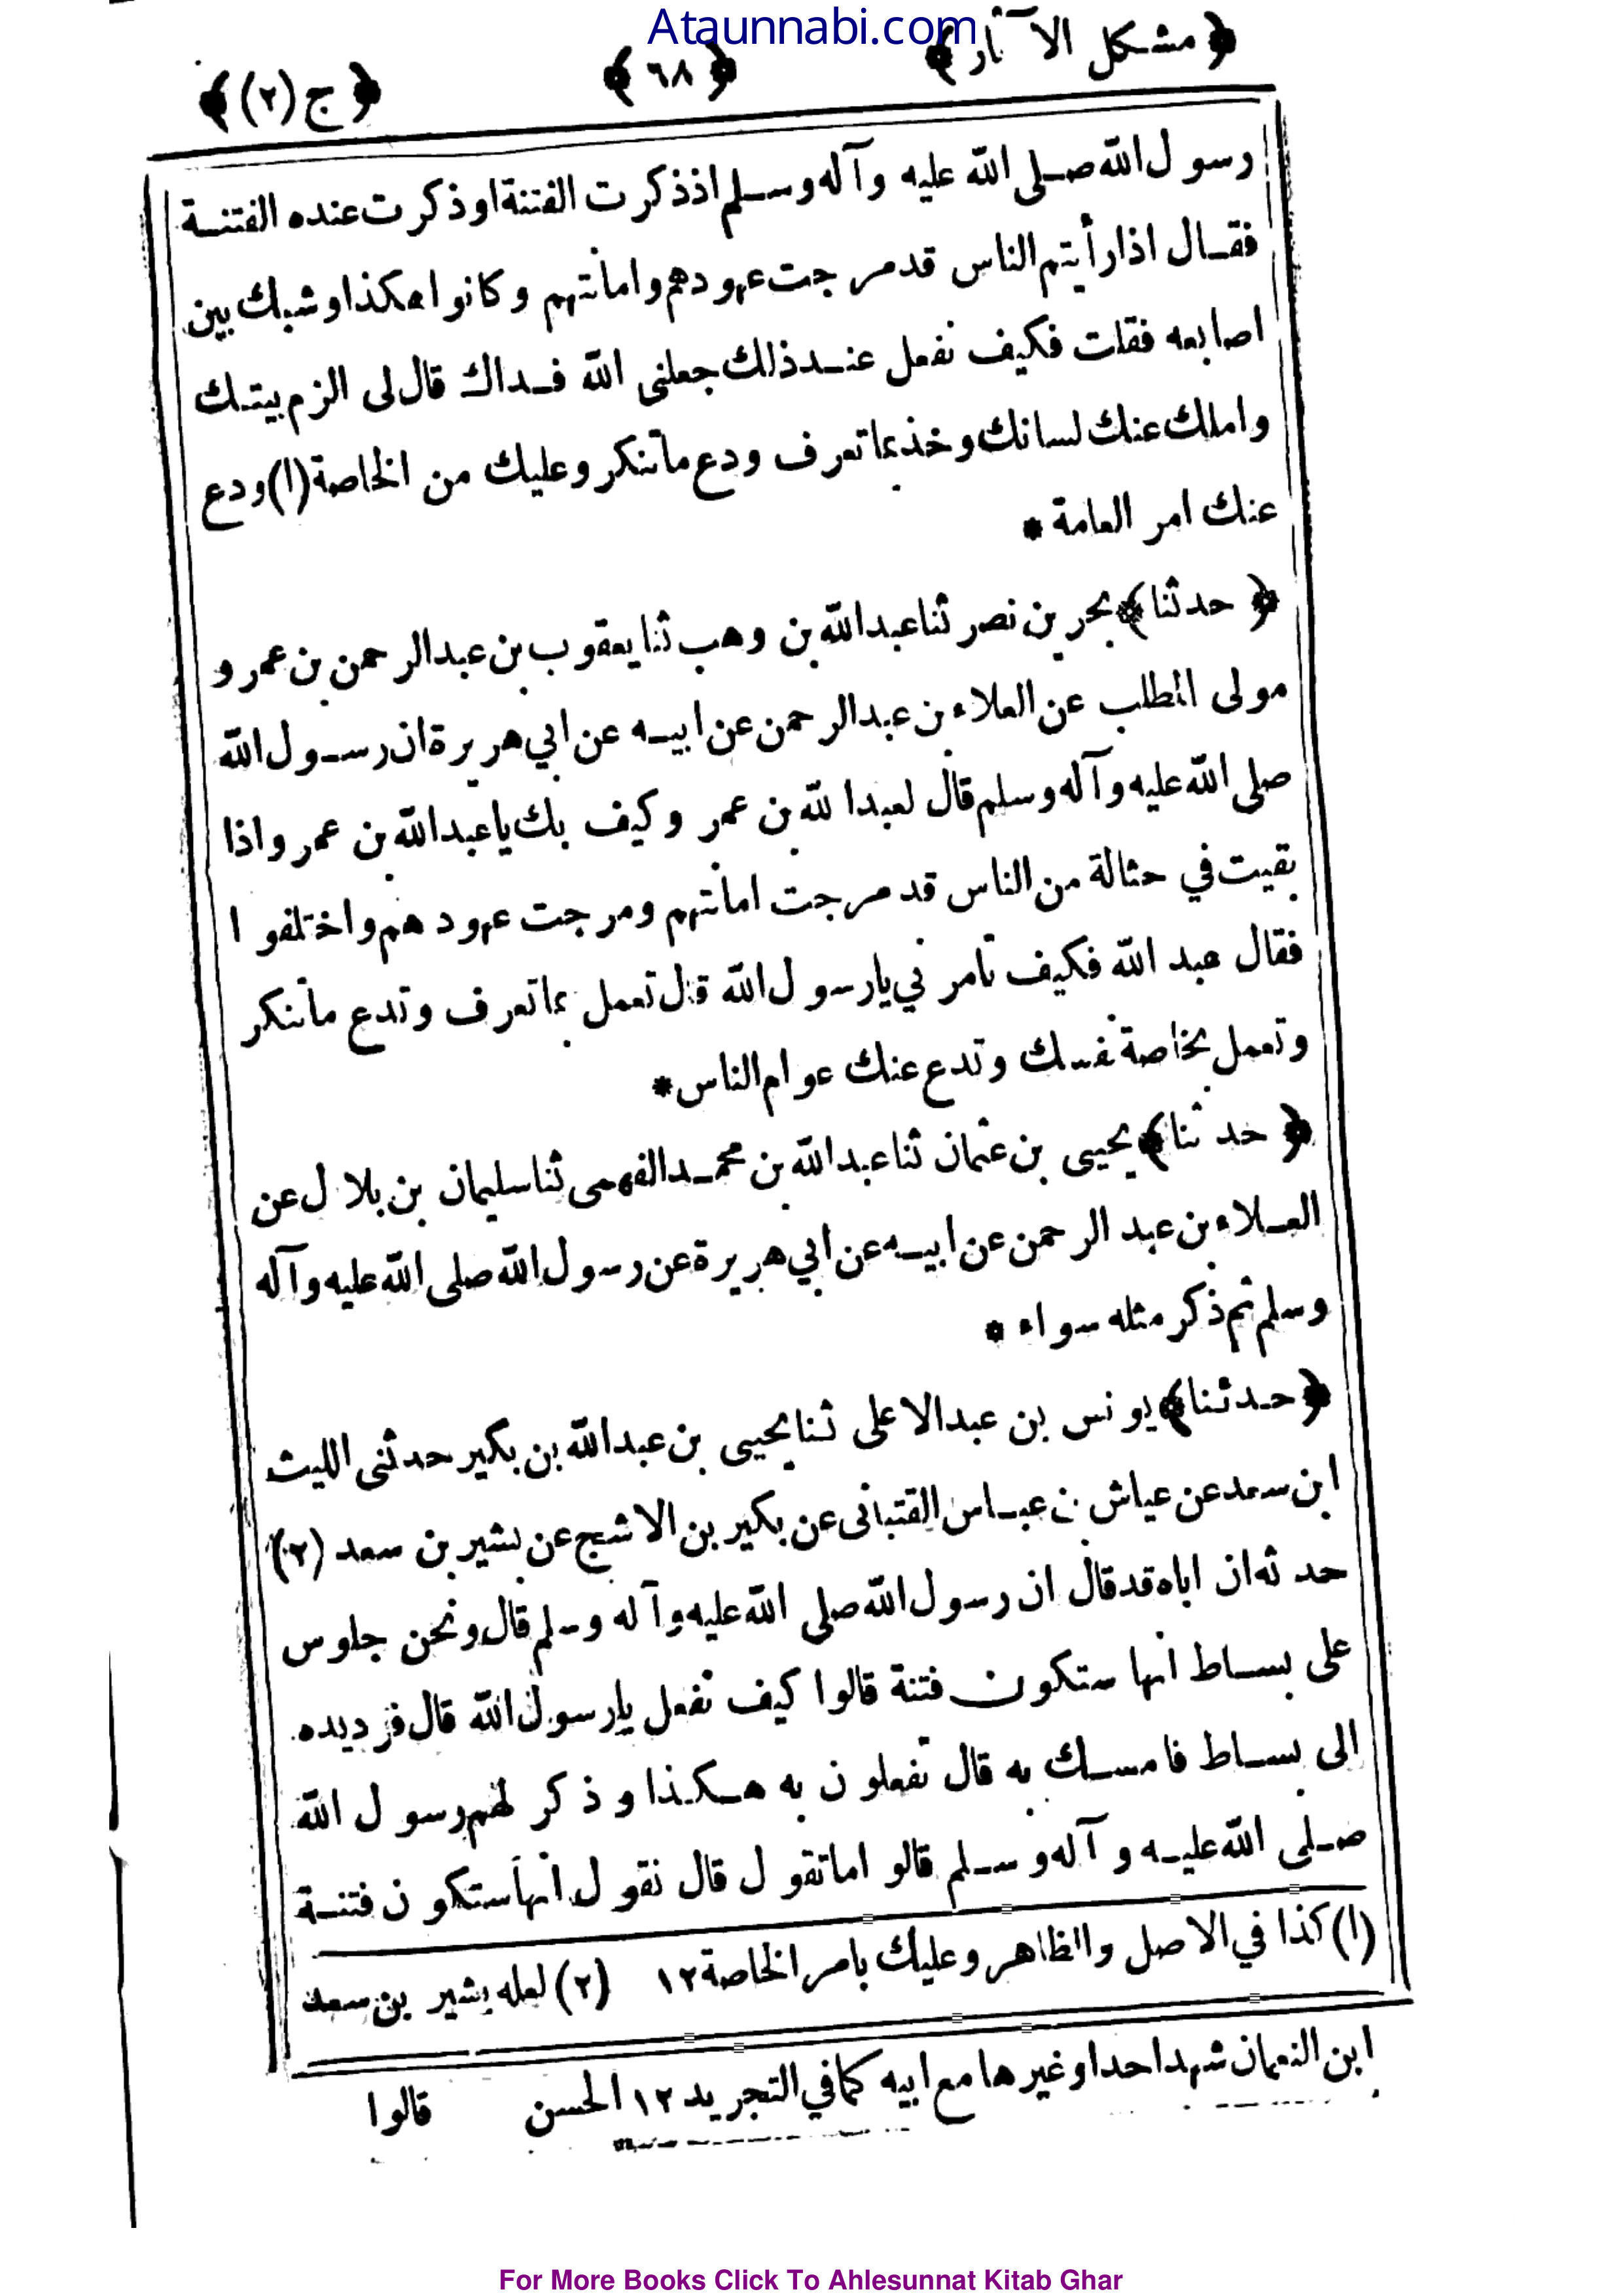 Ataunnabi.com
﴿ مشكل الآثار ﴾ ﴿ ٦٨ ﴾ ﴿ ج (٢) ﴾
رسول الله صلى الله عليه وآله وسلم اذ ذكرت الفتنة او ذكرت عنده الفتنة
فقال اذا رأيتم الناس قد مرجت عهودهم وامانتهم وكانوا هكذا وشبك بين
اصابعه فقلت فكيف نفعل عند ذلك جعلنى الله فداك قال لى الزم بيتك
واملك عنك لسانك وخذ بما تعرف ودع ما تنكر وعليك من الخاصة (١) ودع
عنك امر العامة *
﴿ حدثنا ﴾ بحر بن نصر ثنا عبد الله بن وهب ثنا يعقوب بن عبد الرحمن بن عمرو
مولى المطلب عن العلاء بن عبد الرحمن عن ابيه عن ابي هريرة ان رسول الله
صلى الله عليه وآله وسلم قال لعبد الله بن عمر وكيف بك يا عبد الله بن عمرو اذا
بقيت في حثالة من الناس قد مرجت امانتهم ومرجت عهودهم واختلفوا
فقال عبد الله فكيف تأمرني يا رسول الله قال تعمل بما تعرف وتدع ما تنكر
وتعمل بخاصة نفسك وتدع عنك عوام الناس *
﴿ حدثنا ﴾ يحيى بن عثمان ثنا عبد الله بن محمد الفهمى ثنا سليمان بن بلال عن
العلاء بن عبد الرحمن عن ابيه عن ابي هريرة عن رسول الله صلى الله عليه وآله
وسلم ثم ذكر مثله سواء *
﴿ حدثنا ﴾ يونس بن عبد الاعلى ثنا يحيى بن عبد الله بن بكير حدثنى الليث
ابن سعد عن عياش بن عباس القتبانى عن بكير بن الاشج عن بشير بن سعد (٢)
حدثه ان اباه قد قال ان رسول الله صلى الله عليه وآله وسلم قال ونحن جلوس
على بساط انها ستكون فتنة قالوا كيف نفعل يا رسول الله قال فرد يده
الى بساط فامسك به قال تفعلون به هكذا وذكر لهم رسول الله
صلى الله عليه وآله وسلم قالو اما تقول قال نقول انها ستكون فتنة
(١) كذا في الاصل والظاهر وعليك بامر الخاصة ١٢ (٢) لعله بشير بن سعد
ابن النعمان شهد احدا وغيرها مع ابيه كما في التجريد ١٢ الحسن
قالوا
For More Books Click To Ahlesunnat Kitab Ghar